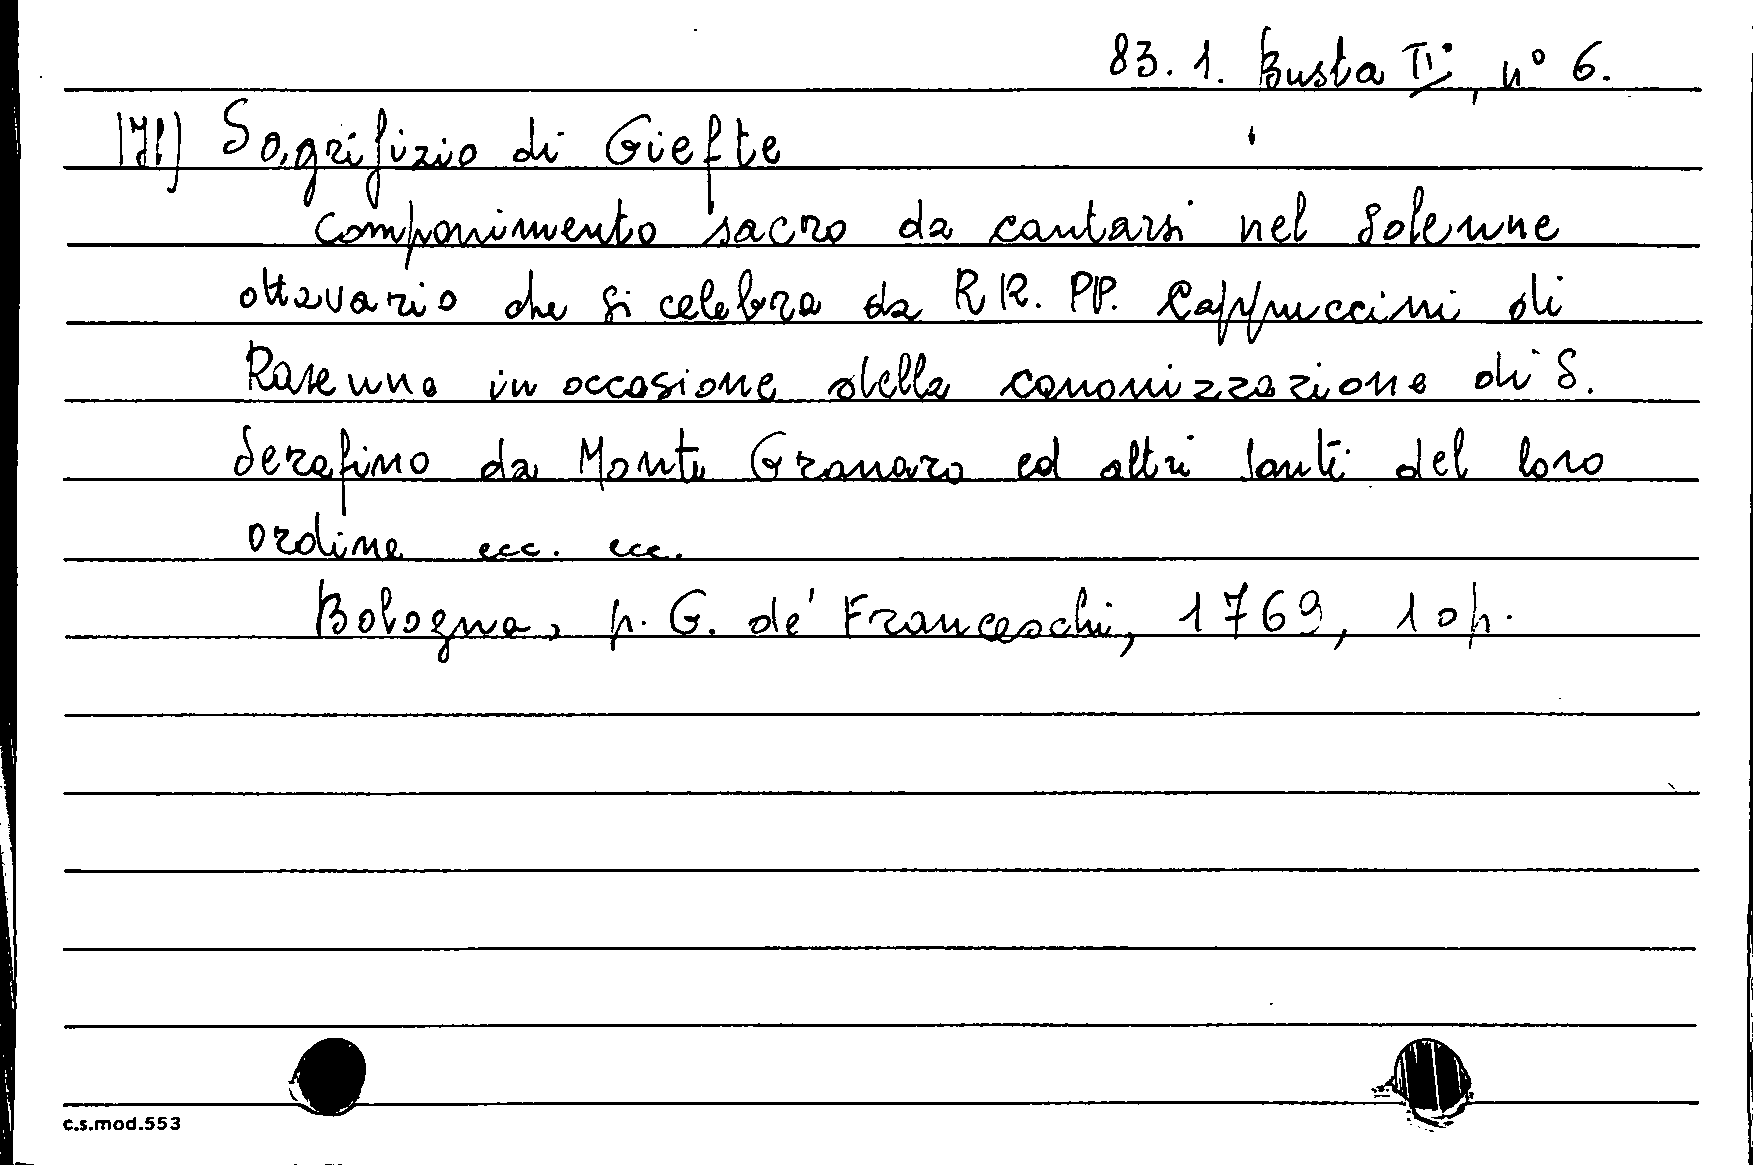 83.1. Busta II, n° 6.
|Il| Sagrifizio di Giefte
componimento sacro da cantarsi nel solenne
ottavario che si celebra da RR. PP. Cappuccini di
Ravenna in occasione della canonizzazione di S.
Serafino da Monte Granaro ed altri santi del loro
ordine ecc. ecc.
Bologna, p. G. de' Franceschi, 1769, 10 p.
c.s.mod.553